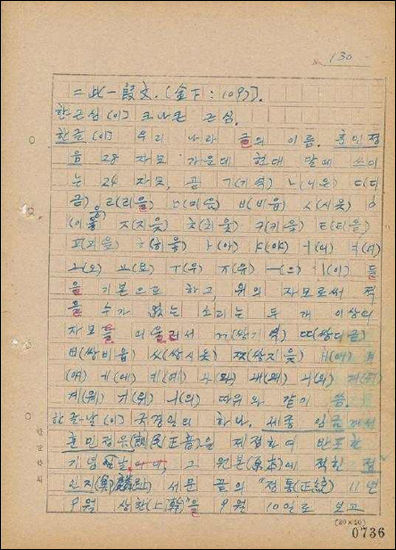 130
二 此一殷文. [金下: 109].
한근심 [이] 크나큰 근심.
한글 [이] 우리 나라 글의 이름. 훈민정
음 28 자모 가운데 현대 말에 쓰이
는 24 자모, 곧 ㄱ(기역) ㄴ(니은) ㄷ(디
귿) ㄹ(리을) ㅁ(미음) ㅂ(비읍) ㅅ(시옷) ㅇ
(이응) ㅈ(지읒) ㅊ(치읓) ㅋ(키읔) ㅌ(티읕)
ㅍ(피읖) ㅎ(히읗) ㅏ(아) ㅑ(야) ㅓ(어) ㅕ(여)
ㅗ(오) ㅛ(요) ㅜ(우) ㅠ(유) ㅡ(으) ㅣ(이) 들
을 기본으로 하고, 위의 자모로써 적
을 수가 없는 소리는 두 개 이상의
자모를 어울러서 ㄲ(쌍기역) ㄸ(쌍디귿)
ㅃ(쌍비읍) ㅆ(쌍시옷) ㅉ(쌍지읒) ㅐ(애) ㅒ
(얘) ㅔ(에) ㅖ(예) ㅘ(와) ㅙ(왜) ㅚ(외) ㅝ(워)
ㅞ(웨) ㅟ(위) ㅢ(의) 따위와 같이 씀.
한글-날 [이] 국경일의 하나. 세종 임금께서
훈민정음(訓民正音)을 제정하여 반포한
기념날, 그 원본(原本)에 적힌 정
인지 서문 끝의 "정통(正統) 11년
9월 상한(上澣)"을 9월 10일로 보고
(20×10)
0736